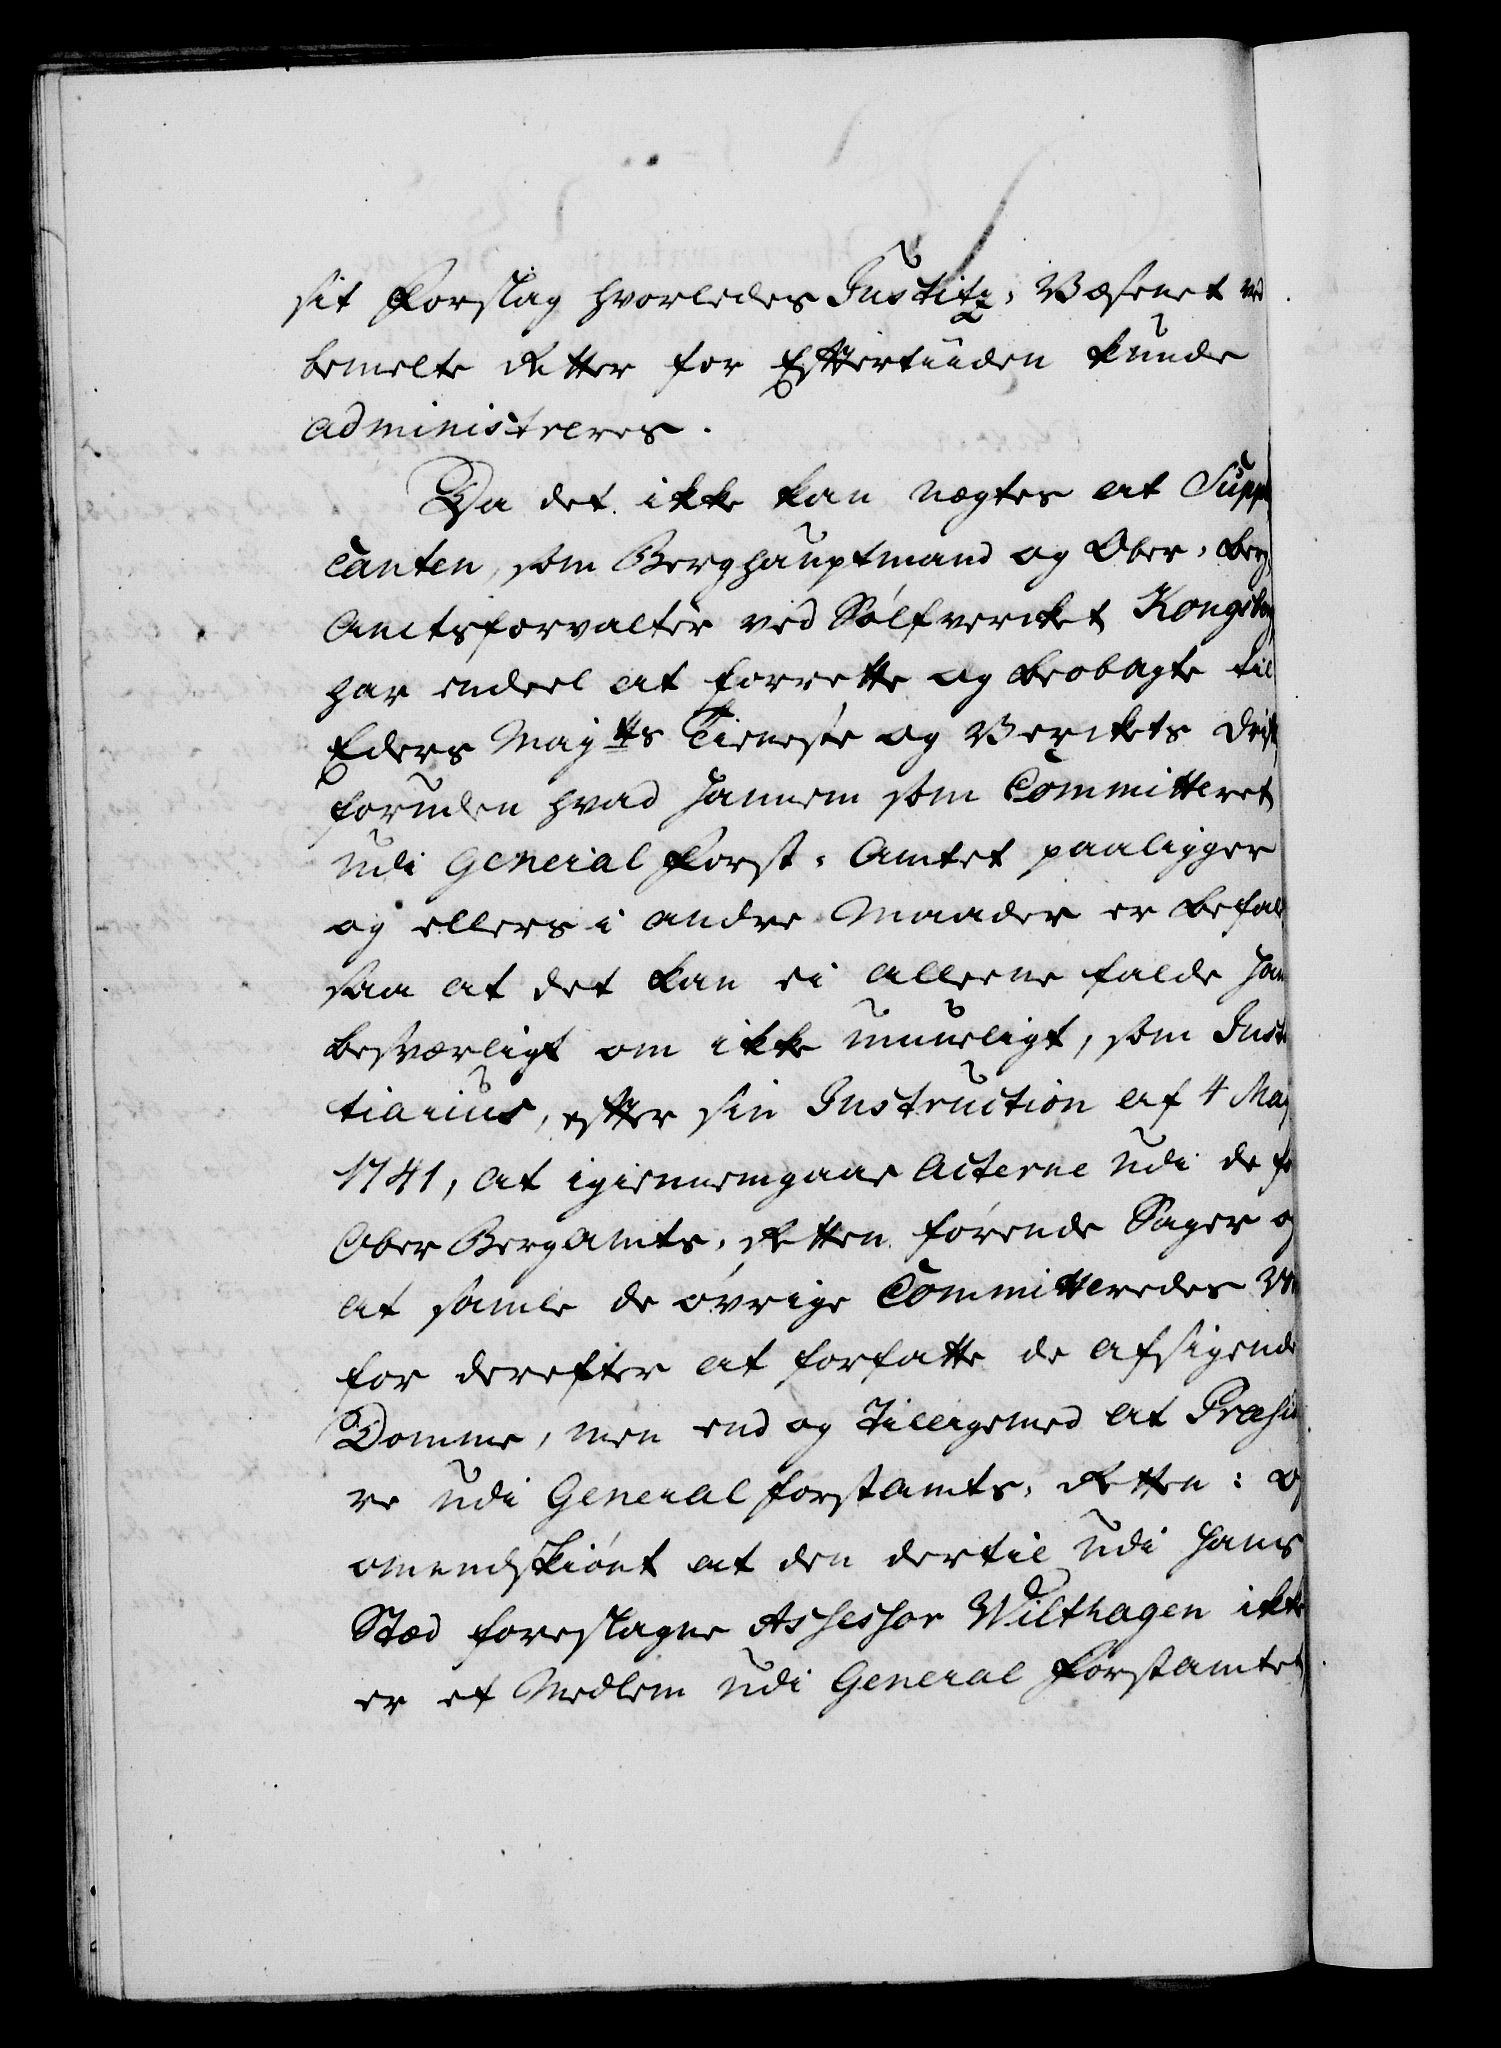 sit Forslag hvorledes Justitz-Væsenet ved
bemelte Retter for Efftertiiden kunde
administreres.
Da det ikke kan nægtes at Suppli
canten, som Berghauptmand og Ober-berg
Amtsforvalter ved Sølfverket Kongsberg
har endeel at forrette og beobagte til
Eders Maytts Tieneste og Verckets Drift,
foruden hvad hannem som Committeret
udi General Forst-Amtet paaligger
og ellers i andre Maader er befalet
saa at det kan ei alleene falde ham
besværligt om ikke umueligt, som Justi
tiarius, effter sin Instruction af 4 Maj
1741, at igiennemgaae Acterne udi de for
Ober Bergamts-Retten førende Sager og
at samle de øvrige Committeredes
for derefter at forfatte de afsigende
Domme, men end og tilligemed at Præsi
re udi General forstamts-Retten: Og
omendskiønt at den dertil udi hans
Stæd foreslagne Assessor Wilthagen ikke
er et Medlem udi General Forstamtet,